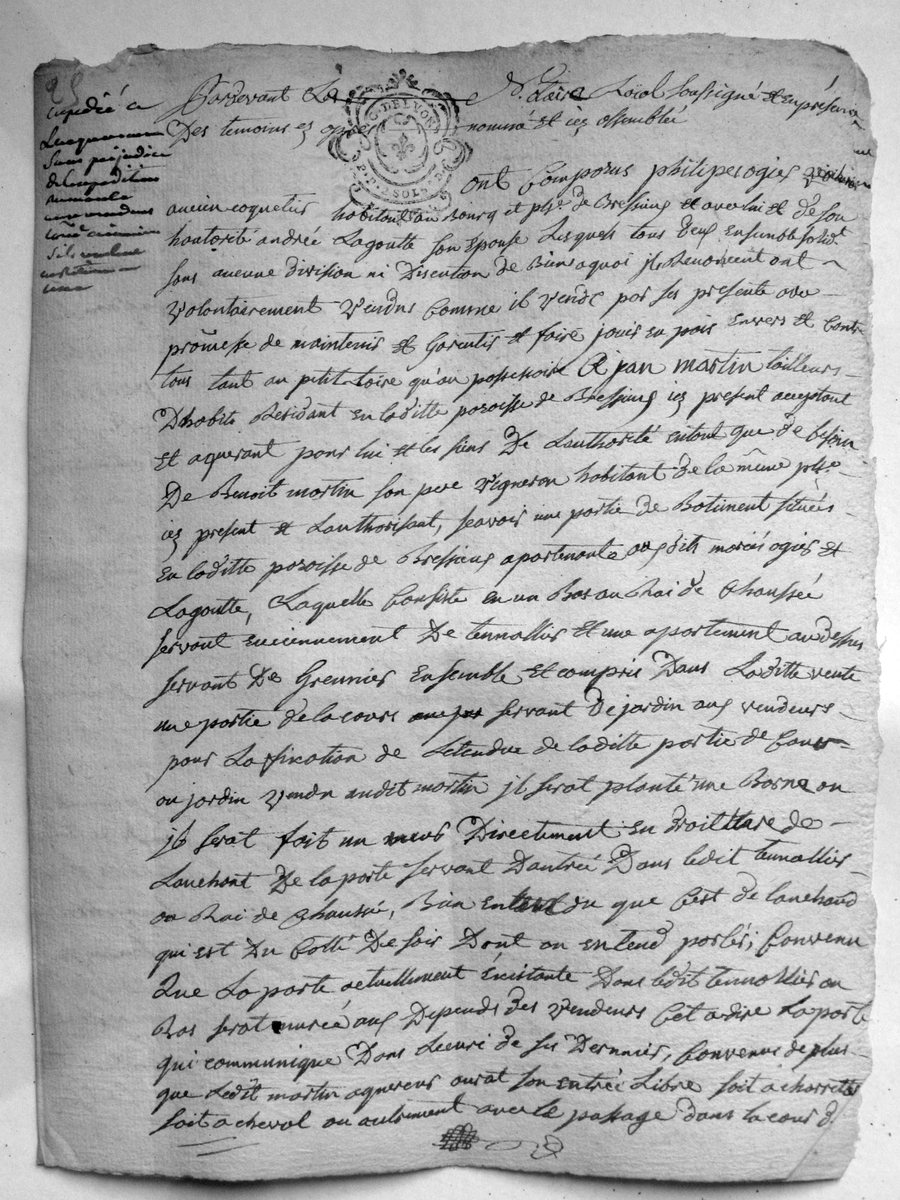 25
expedié a
Lacquereur
sans prejudice
de lexpedition
Pardevant Le Notaire Roial Soussigné et en présence
Des temoins cy apres nommé et icy assemblée
G. DE LYON
P.P. 2 SOLS. D.
ont Comparus philipe logies
ancien coquetier habitant au Bourg et psse de Bressieus et avec lui et de son
hautorité andrée Lagoutte son Epouse Lesquels tous deux Ensemble solidt
sans aucune division ni Discution de Biens a quoi jls Renoncent ont
Volontairement Vendus Comme il Vende par ses presente avec
promesse de maintenir et Garentir et faire jouir en pais Envers et Contre
tous tant au pititoire qu'au possessoire A jan martin tailleurs
Dhabits Residant en laditte paroisse de Bressieus icy present acceptant
Et aquerant pour lui et les siens De Lauthorité entant que de besoin
De Benoit martin son pere Vigneron habitant de la même psse
icy present et Lauthorisant, scavoir une partie de Batiment situées
En laditte paroisse de Bressieus apartenante aus dits mariés logies et
Lagoutte, Laquelle Consiste en un Bas au Rai de Chaussée
servant enciennement De tenallier et une apartement au dessus
servant De Grennier Ensemble et compris Dans Laditte vente
une partie de la cours servant De jardin aus vendeurs
pour La fixation de Letendue de laditte partie de Cour
ou jardin Vendu audit martin jl serat planté une Borne ou
jl serat fait un murs Directement en Droitture de
Lanchant De la porte servant Dantrée Dans ledit tenallier
au Rai de Chaussé, Bien entendu que C'est de lanchand
qui est Du Cotté De soir Dont on entend parler, Convenu
Que La porte actuellement Existante Dans ledit tenallier ou
Bas serat murée aus Depends des Vendeurs C'et a dire La porte
qui communique Dans Lecuri de ses Derniers, Convenus de plus
que Ledit martin aquereur aurat son entrée Libre soit a charrette
soit a cheval ou autrement avec le passage dans la cour d.